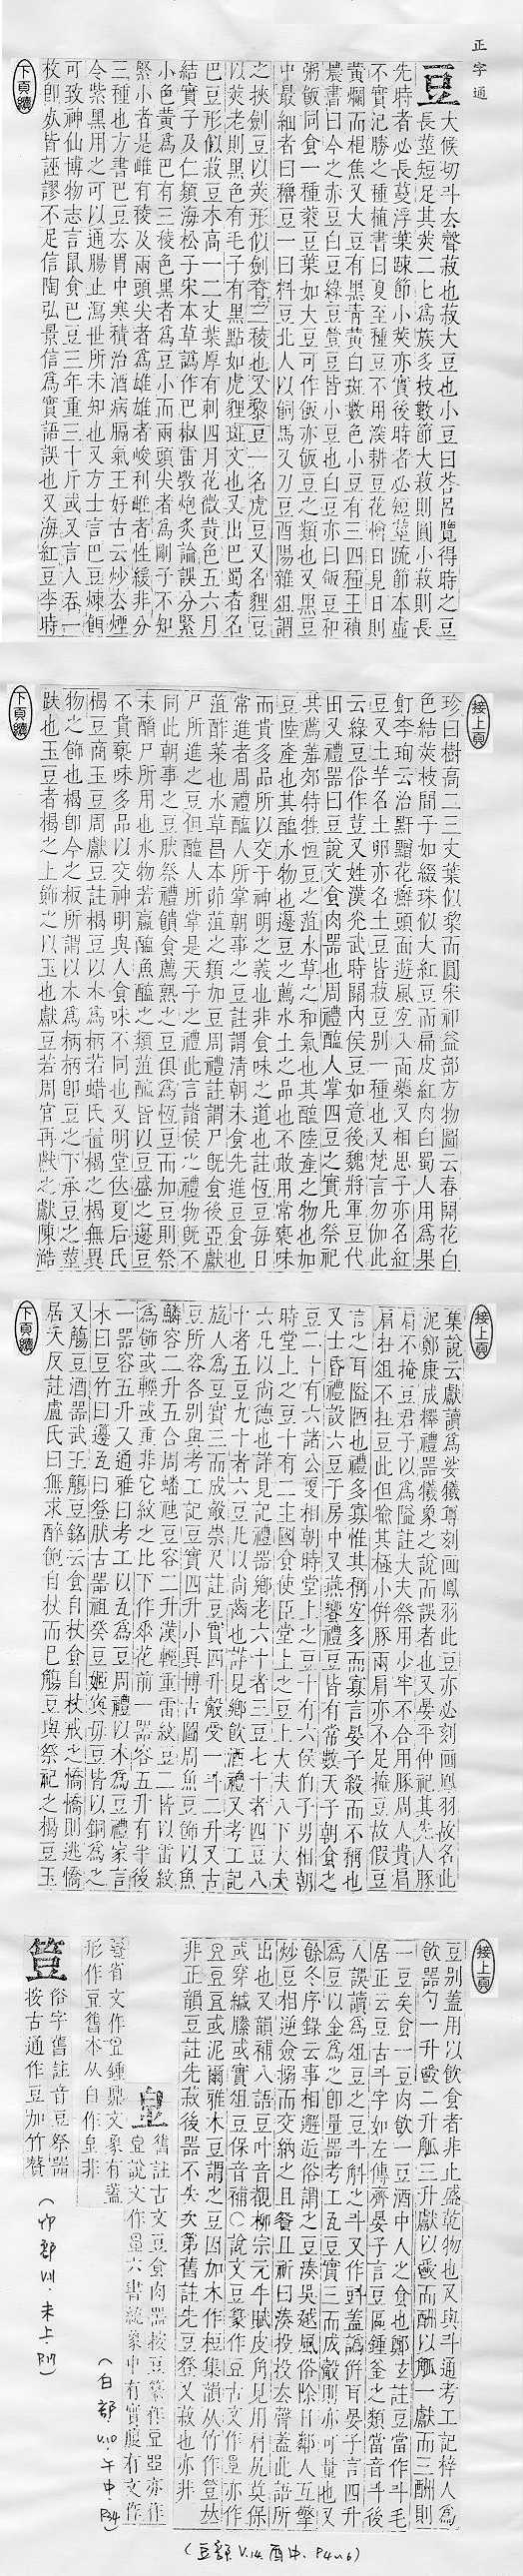 正字通
豆
大候切斗去聲菽也菽大豆也小豆曰荅呂覽得時之豆
長莖短足其莢二七為族多枝數節大菽則圓小菽則長
先時者必長蔓浮葉疎節小莢亦實後時者必短莖疏節本虛
不實氾勝之種植書曰夏至種豆不用深耕豆花憎日見日則
黃爛而根焦又大豆有黑青黃白斑數色小豆有三四種王禎
農書曰今之赤豆白豆綠豆豆皆小豆也白豆亦曰飯豆和
粥飯同食一種菉豆葉如大豆可作飯亦飯豆之類也又黑豆
中最細者曰穭豆一曰料豆北人以飼馬又刀豆酉陽雜俎謂
之挾劍豆以莢形似劍脊三稜也又黎豆一名虎豆又名貍豆
以莢老則黑色有毛子有黑點如虎貍斑文也又出巴蜀者名
巴豆形似菽豆木高一二丈葉厚有刺四月花微黃色五六月
結實子及仁類海松子宋本草譌作巴椒雷斆炮炙論誤分緊
小色黃為巴有三稜色黑者為豆小而兩頭尖者為剛子不知
緊小者是雌有稜及兩頭尖者為雄雄者峻利雌者性緩非分
三種也方書巴豆去胃中寒積治酒病膈氣王好古云炒去煙
令紫黑用之可以通腸止瀉世所未知也又方士言巴豆煉餌
可致神仙博物志言鼠食巴豆三年重三十斤或又言人吞一
枚卽死皆誣謬不足信陶弘景信為實語誤也又海紅豆李時
下頁續
接上頁
珍曰樹高二三丈葉似梨而圓宋祁益部方物圖云春開花白
色結莢枝間子如綴珠似大紅豆而扁皮紅肉白蜀人用為果
飣李珣云治䵟黯花癬頭面遊風宜入面藥又相思子亦名紅
豆又土芋名土卵亦名土豆皆菽豆別一種也又梵言勿伽此
云綠豆俗作荳又姓漢光武時關內侯豆如意後魏將軍豆代
田又禮器曰豆說文食肉器也周禮醢人掌四豆之實凡祭祀
共薦羞郊特牲恆豆之菹水草之和氣也其醢陸產之物也加
豆陸產也其醢水物也籩豆之薦水土之品也不敢用常褻味
而貴多品所以交于神明之義也非食味之道也註恆豆每日
常進者周禮醢人所掌朝事之豆註謂清朝未食先進豆食也
菹酢菜也水草昌本茆菹之類加豆周禮註謂尸旣食後亞獻
尸所進之豆俱醢人所掌是天子之禮此言諸侯之禮物旣不
同此朝事之豆朕祭禮饋食薦熟之豆俱為恆豆而加豆則祭
末酳尸所用也水物若蠃醢魚醢之類菹醢皆以豆盛之籩豆
不貴褻味多品以交神明與人食味不同也又明堂位夏后氏
楬豆商玉豆周獻豆註楬豆以木為柄若蜡氏置楬之楬無異
物之飾也楬卽今之板所謂以木為柄柄卽豆之下承豆之莖
趺也玉豆者楬之上飾之以玉也獻豆若周官再獻之獻陳澔
下頁續
接上頁
集說云獻讀為娑犧尊刻畫鳳羽此豆亦必刻畫鳳羽故名此
泥鄭康成釋禮器犧象之說而誤者也又晏平仲祀其先人豚
肩不掩豆君子以為隘註大夫祭用少牢不合用豚周人貴肩
肩在俎不在豆此但喻其極小倂豚兩肩亦不足掩豆故假豆
言之耳隘陋也禮多寡惟其稱宜多而寡言晏子殺而不稱也
又士昏禮設六豆于房中又燕饗禮豆皆有常數天子朝食之
豆二十有六諸公更相朝時堂上之豆十有六侯伯子男相朝
時堂上之豆十有二主國食使臣堂上之豆上大夫八下大夫
六凡以尚德也詳見記禮器鄉老六十者三豆七十者四豆八
十者五豆九十者六豆凡以尚齒也詳見鄉飲酒禮又考工記
瓬人為豆實三而成觳崇尺註豆實四升觳受一斗二升又古
豆所容各別與考工記豆實四升小異博古圖周魚豆飾以魚
鱗容二升五合周蟠虺豆容二升漢輕重雷紋豆二皆以雷紋
為飾或輕或重非它紋之比下作垂花前一器容五升有半後
一器容五升又通雅曰考工以瓦為豆周禮以木為豆禮家言
木曰豆竹曰籩瓦曰登朕古器祖癸豆姬寏毋豆皆以銅為之
又觴豆酒器武王觴豆銘云食自杖食自杖戒之憍憍則逃憍
居夭反註盧氏曰無求醉飽自杖而已觴豆與祭祀之楬豆玉
下頁續
接上頁
豆別蓋用以飲食者非止盛乾物也又與斗通考工記梓人為
飲器勺一升爵二升觚三升獻以爵而酬以觚一獻而三酬則
一豆矣食一豆肉飲一豆酒中人之食也鄭玄註豆當作斗毛
居正云豆古斗字如左傳齊晏子言豆區鍾釜之類當音斗後
人誤讀為俎豆之豆斗斛之斗又作蓋譌倂耳晏子言四升
為豆以金為之卽量器考工瓦豆實三而成觳則亦可量也又
餘冬序錄云事相邂近俗謂之豆湊吳越風俗除日鄰人互擎
炒豆相逆僉掬而交納之且餐且祈曰湊投投去聲蓋此語所
出也又韻補八語豆叶音覩柳宗元牛賦皮角見用肩尻莫保
或穿緘縢或實俎豆保音補○說文豆篆作古文作亦作
豆或泥爾雅木豆謂之豆因加木作梪集韻从竹作登
非正韻豆註先菽後器不失次第舊註先豆祭又菽也亦非
皇
舊註古文豆食肉器按豆篆作亦作
說文作六書統象中有實有文作
省文作鍾鼎文象有蓋
形作舊本从自作皇非
䇺
俗字舊註音豆祭器
按古通作豆加竹贅
(竹部 V.11.未上.P.17)
(白部 V.10.午中.P.34)
(豆部 V.14.酉中.P.4)